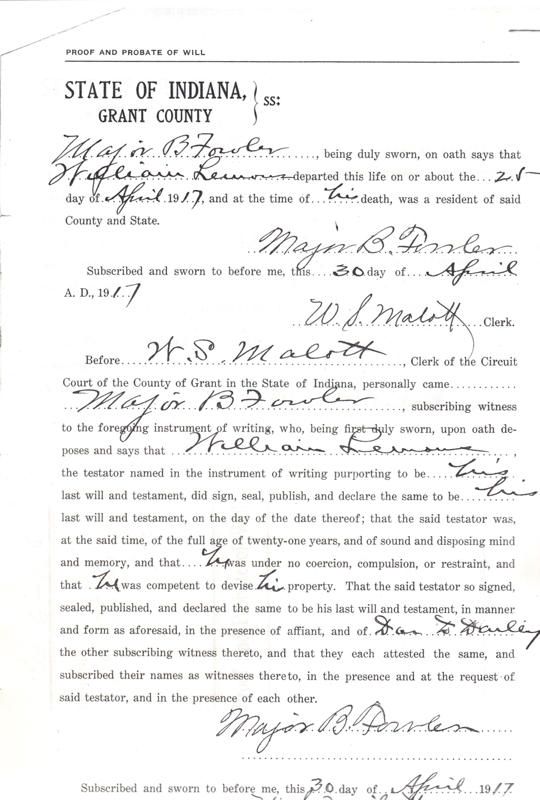 PROOF AND PROBATE OF WILL
STATE OF INDIANA,
GRANT COUNTY
} ss:
Major B Fowler, being duly sworn, on oath says that
William Lemons departed this life on or about the 25
day of April 1917, and at the time of his death, was a resident of said
County and State.
Major B. Fowler
Subscribed and sworn to before me, this 30 day of April
A. D., 1917
W. S. Malott Clerk.
Before W. S. Malott, Clerk of the Circuit
Court of the County of Grant in the State of Indiana, personally came
Major B Fowler, subscribing witness
to the foregoing instrument of writing, who, being first duly sworn, upon oath de-
poses and says that William Lemons,
the testator named in the instrument of writing purporting to be his
last will and testament, did sign, seal, publish, and declare the same to be his
last will and testament, on the day of the date thereof; that the said testator was,
at the said time, of the full age of twenty-one years, and of sound and disposing mind
and memory, and that he was under no coercion, compulsion, or restraint, and
that he was competent to devise his property. That the said testator so signed,
sealed, published, and declared the same to be his last will and testament, in manner
and form as aforesaid, in the presence of affiant, and of Dan
the other subscribing witness thereto, and that they each attested the same, and
subscribed their names as witnesses thereto, in the presence and at the request of
said testator, and in the presence of each other.
Major B. Fowler
Subscribed and sworn to before me, this 30 day of April 1917